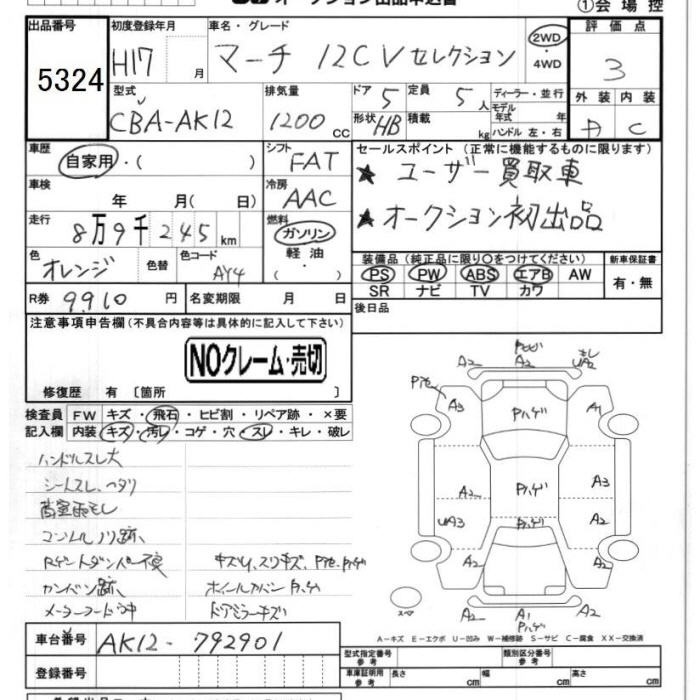 オークション出品申込書
①会場控
出品番号
5324
初度登録年月
H17 月
車名・グレード
マーチ 12CV セレクション
2WD
・4WD
評価点
3
外装 内装
D C
型式
CBA-AK12
排気量
1200 CC
ドア 5
定員 5人
形状 HB
積載 kg
ディーラー・並行
モデル年式 年
ハンドル 左・右
車歴
自家用・( )
シフト
FAT
セールスポイント (正常に機能するものに限ります)
★ ユーザー買取車
★ オークション初出品
車検
年 月( 日)
冷房
AAC
走行
8万9千245km
燃料
ガソリン
軽油
・( )
色
オレンジ
色替
色コード
AY4
装備品 (純正品に限り○をつけてください)
PS PW ABS エアB AW
SR ナビ TV カワ
新車保証書
有・無
R券 9910 円
名変期限 月 日
後日品
注意事項申告欄 (不具合内容等は具体的に記入して下さい)
NOクレーム・売切
修復歴 有 〔箇所 〕
検査員
記入欄
FW キズ・飛石・ヒビ割・リペア跡・×要
内装 キズ・汚レ・コゲ・穴・スレ・キレ・破レ
ハンドルスレ大
シートスレ、ヘタリ
コンソルノリ跡、
カンバン跡、
キズ凹、スリキズ、
ホイールカバー
ドアミラーキズ
A2 A2
A3 Pハゲ A1
A2 Pハゲ A3
UA3 Pハゲ A2
A2 A2
スペア
A2 A1 A2
Pハゲ
A-キズ E-エクボ U-凹み W-補修跡 S-サビ C-腐食 XX-交換済
車台番号
AK12-792901
登録番号
型式指定番号
参考
類別区分番号
参考
車庫証明
参考
長さ cm
幅 cm
高さ cm